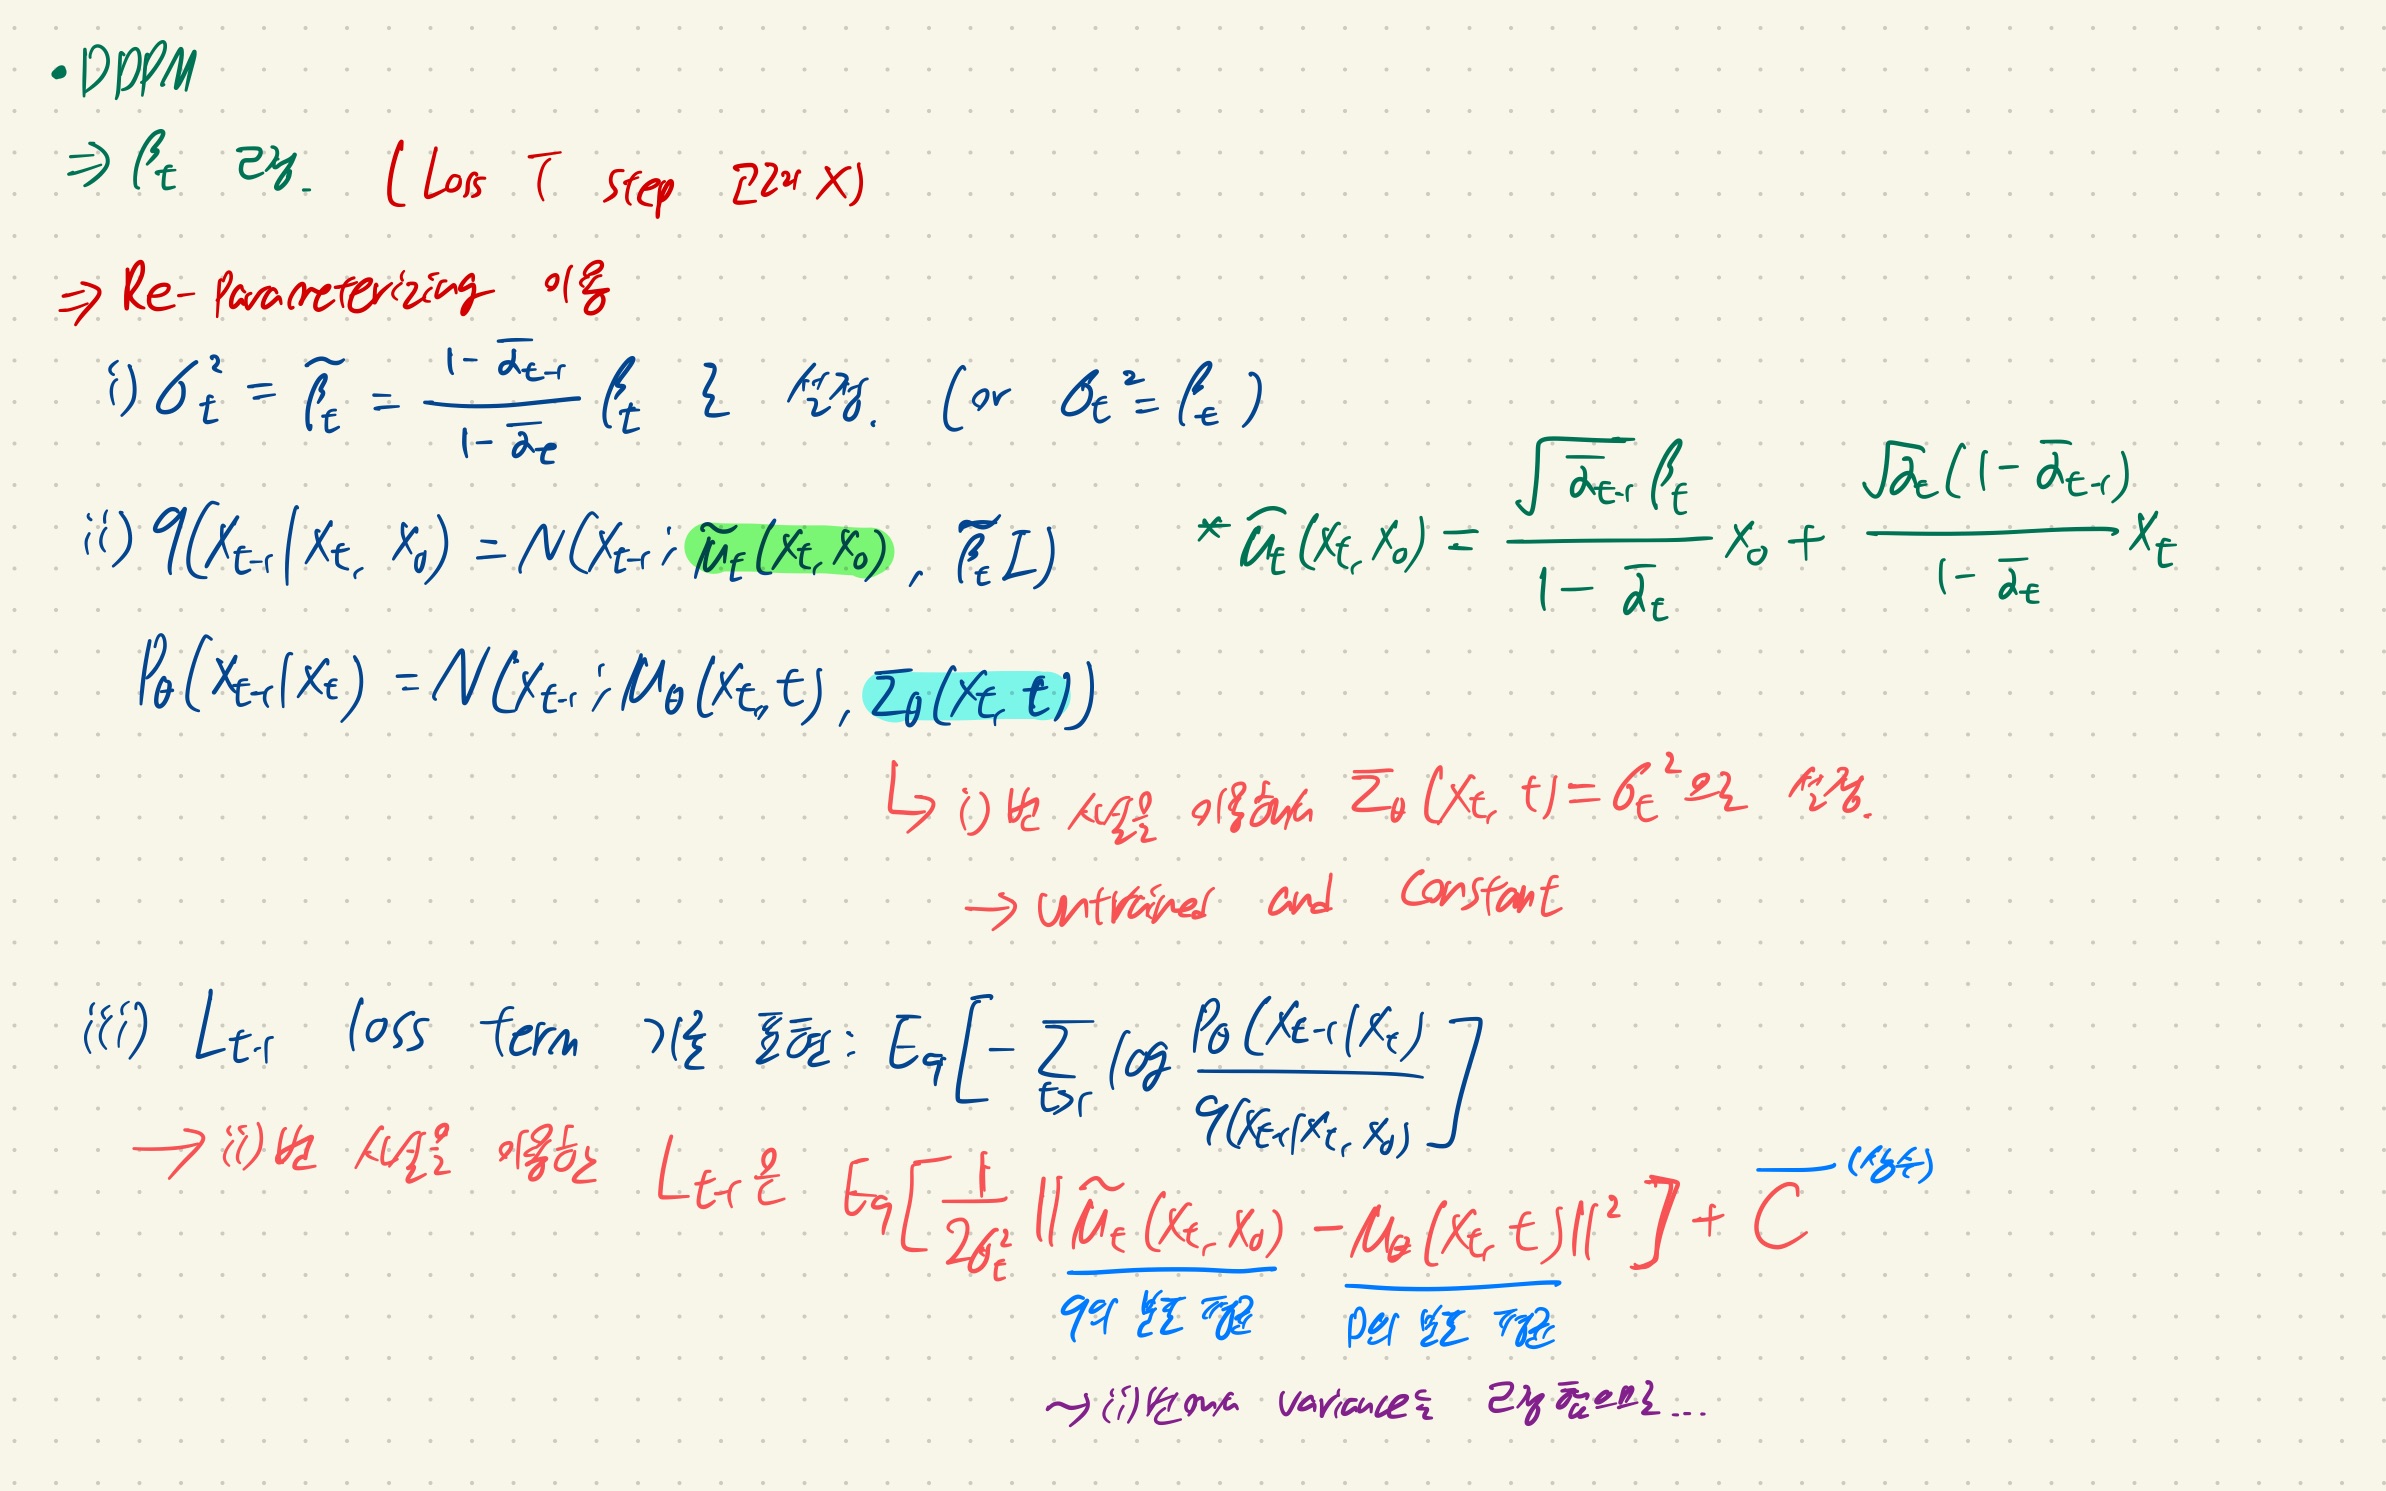 • DDPM
⇒ βₜ 고정. (Loss T step 고려 X)
⇒ Re-Parameterizing 이용
i) σₜ² = β̃ₜ = (1 - ᾱₜ₋₁)/(1 - ᾱₜ) βₜ 로 설정. (or σₜ² = βₜ)
ii) q(xₜ₋₁|xₜ, x₀) = N(xₜ₋₁; μ̃ₜ(xₜ, x₀), β̃ₜI) * μ̃ₜ(xₜ, x₀) = (√ᾱₜ₋₁ βₜ)/(1 - ᾱₜ) x₀ + (√αₜ(1 - ᾱₜ₋₁))/(1 - ᾱₜ) xₜ
Pθ(xₜ₋₁|xₜ) = N(xₜ₋₁; μθ(xₜ, t), Σθ(xₜ, t))
↳ i)번 사실을 이용하여 Σθ(xₜ, t) = σₜ²으로 설정.
→ untrained and constant
iii) Lₜ₋₁ loss term : Eq[- Σ t>1 log Pθ(xₜ₋₁|xₜ)/q(xₜ₋₁|xₜ, x₀)]
→ ii)번 사실을 이용하면 Lₜ₋₁은 Eq[1/(2σₜ²) ||μ̃ₜ(xₜ, x₀) - μθ(xₜ, t)||²] + C (상수)
q의 분포 평균 p의 분포 평균
→ ii)번에서 variance는 고정했으므로...